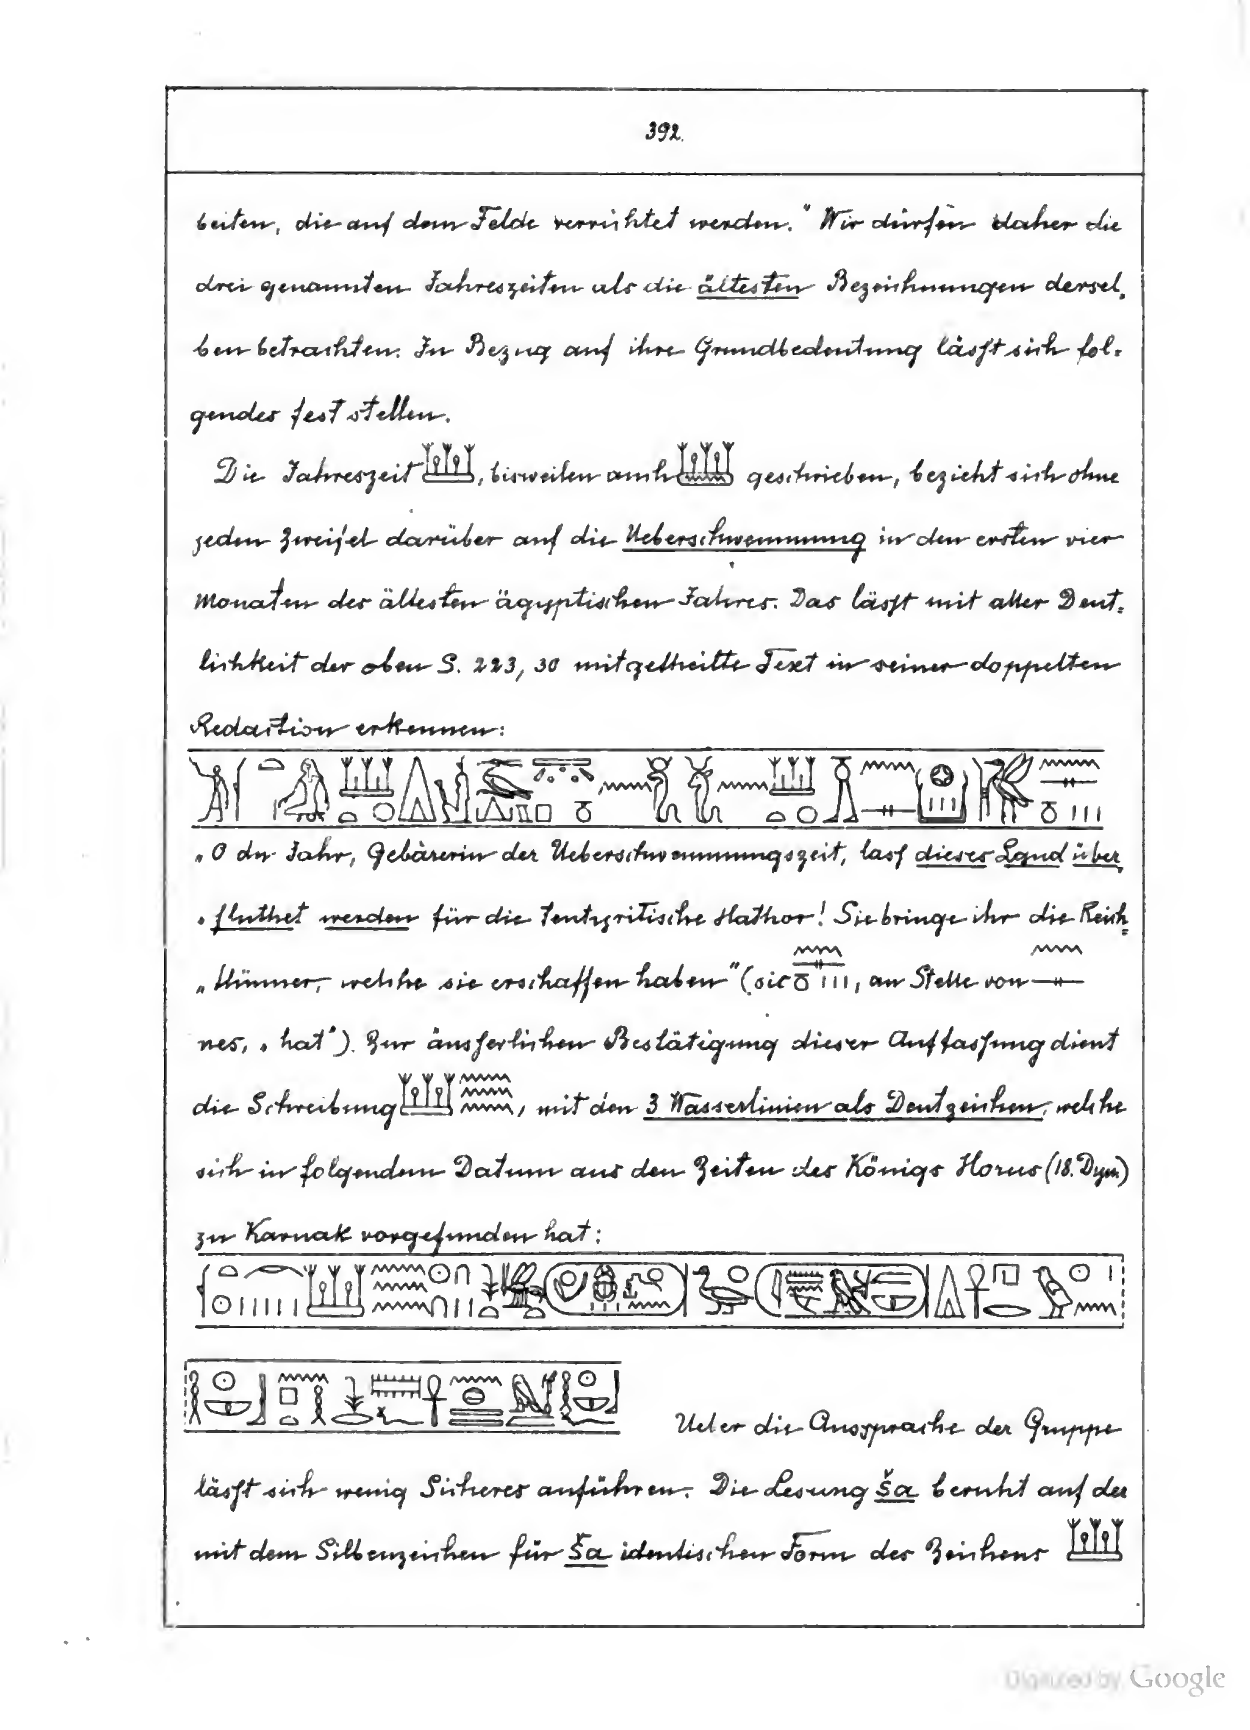 392.
beiten, die auf dem Felde verrichtet werden." Wir dürfen daher die
drei genannten Jahreszeiten als die ältesten Bezeichnungen dersel,
ben betrachten. In Bezug auf ihre Grundbedeutung lässt sich fol-
gendes feststellen.
Die Jahreszeit 𓆷, bisweilen auch 𓆷 geschrieben, bezieht sich ohne
jeden Zweifel darüber auf die Ueberschwemmung in den ersten vier
Monaten des ältesten ägyptischen Jahres. Das lässt mit aller Deut-
lichkeit der oben S. 223, 30 mitgetheilte Text in seiner doppelten
Redaction erkennen:
„O du Jahr, Gebärerin der Ueberschwemmungszeit, lass dieses Land über,
„fluthet werden für die tentyritische Hathor! Sie bringe ihr die Reich-
„thümer, welche sie erschaffen haben" (sic 𓈖𓊃𓏌𓏥, an Stelle von 𓈖𓊃
nes, „hat"). Zur äusserlichen Bestätigung dieser Auffassung dient
die Schreibung 𓆷𓈗, mit den 3 Wasserlinien als Deutzeichen, welche
sich in folgendem Datum aus den Zeiten des Königs Horus (18. Dyn.)
zu Karnak vorgefunden hat:
Ueber die Aussprache der Gruppe
lässt sich wenig Sicheres anführen. Die Lesung ša beruht auf der
mit dem Silbenzeichen für ša identischen Form des Zeichens 𓆷
Digitized by Google